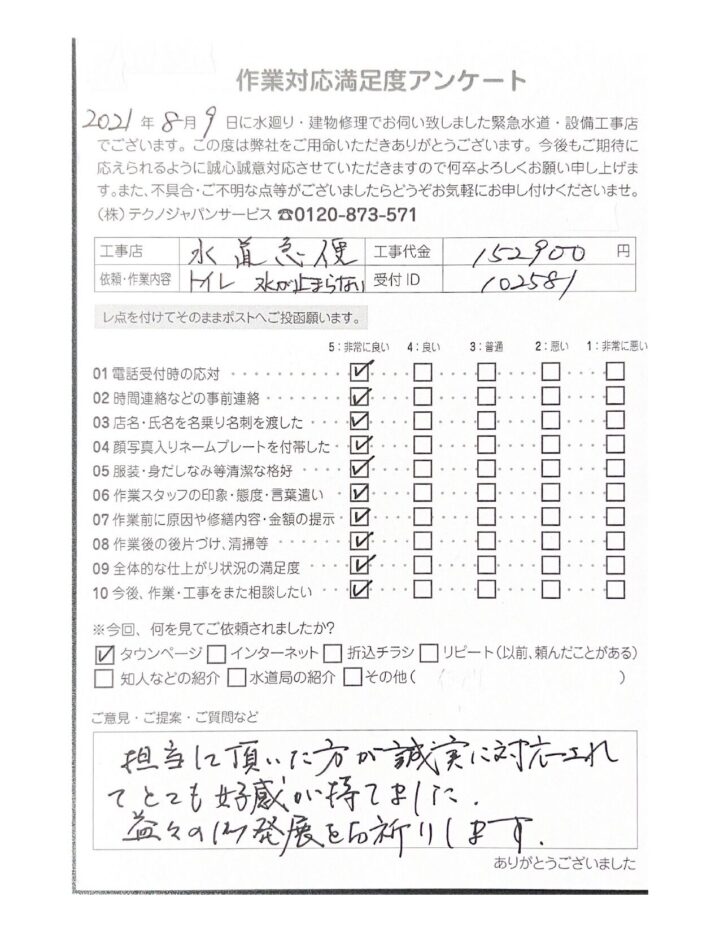 作業対応満足度アンケート
2021年8月9日に水廻り・建物修理でお伺い致しました緊急水道・設備工事店
でございます。この度は弊社をご用命いただきありがとうございます。今後もご期待に
応えられるように誠心誠意対応させていただきますので何卒よろしくお願い申し上げま
す。また、不具合・ご不明な点等がございましたらどうぞお気軽にお申し付けくださいませ。
(株)テクノジャパンサービス ☎0120-873-571
工事店 水道急便 工事代金 152900 円
依頼・作業内容 トイレ 水が止まらない 受付ID 102581
レ点を付けてそのままポストへご投函願います。
5:非常に良い 4:良い 3:普通 2:悪い 1:非常に悪い
01 電話受付時の応対
02 時間連絡などの事前連絡
03 店名・氏名を名乗り名刺を渡した
04 顔写真入りネームプレートを付帯した
05 服装・身だしなみ等清潔な格好
06 作業スタッフの印象・態度・言葉遣い
07 作業前に原因や修繕内容・金額の提示
08 作業後の後片づけ、清掃等
09 全体的な仕上がり状況の満足度
10 今後、作業・工事をまた相談したい
※今回、何を見てご依頼されましたか?
タウンページ インターネット 折込チラシ リピート(以前、頼んだことがある)
知人などの紹介 水道局の紹介 その他( )
ご意見・ご提案・ご質問など
担当して頂いた方が誠実に対応され
てとても好感が持てました.
益々の御発展をお祈りします.
ありがとうございました